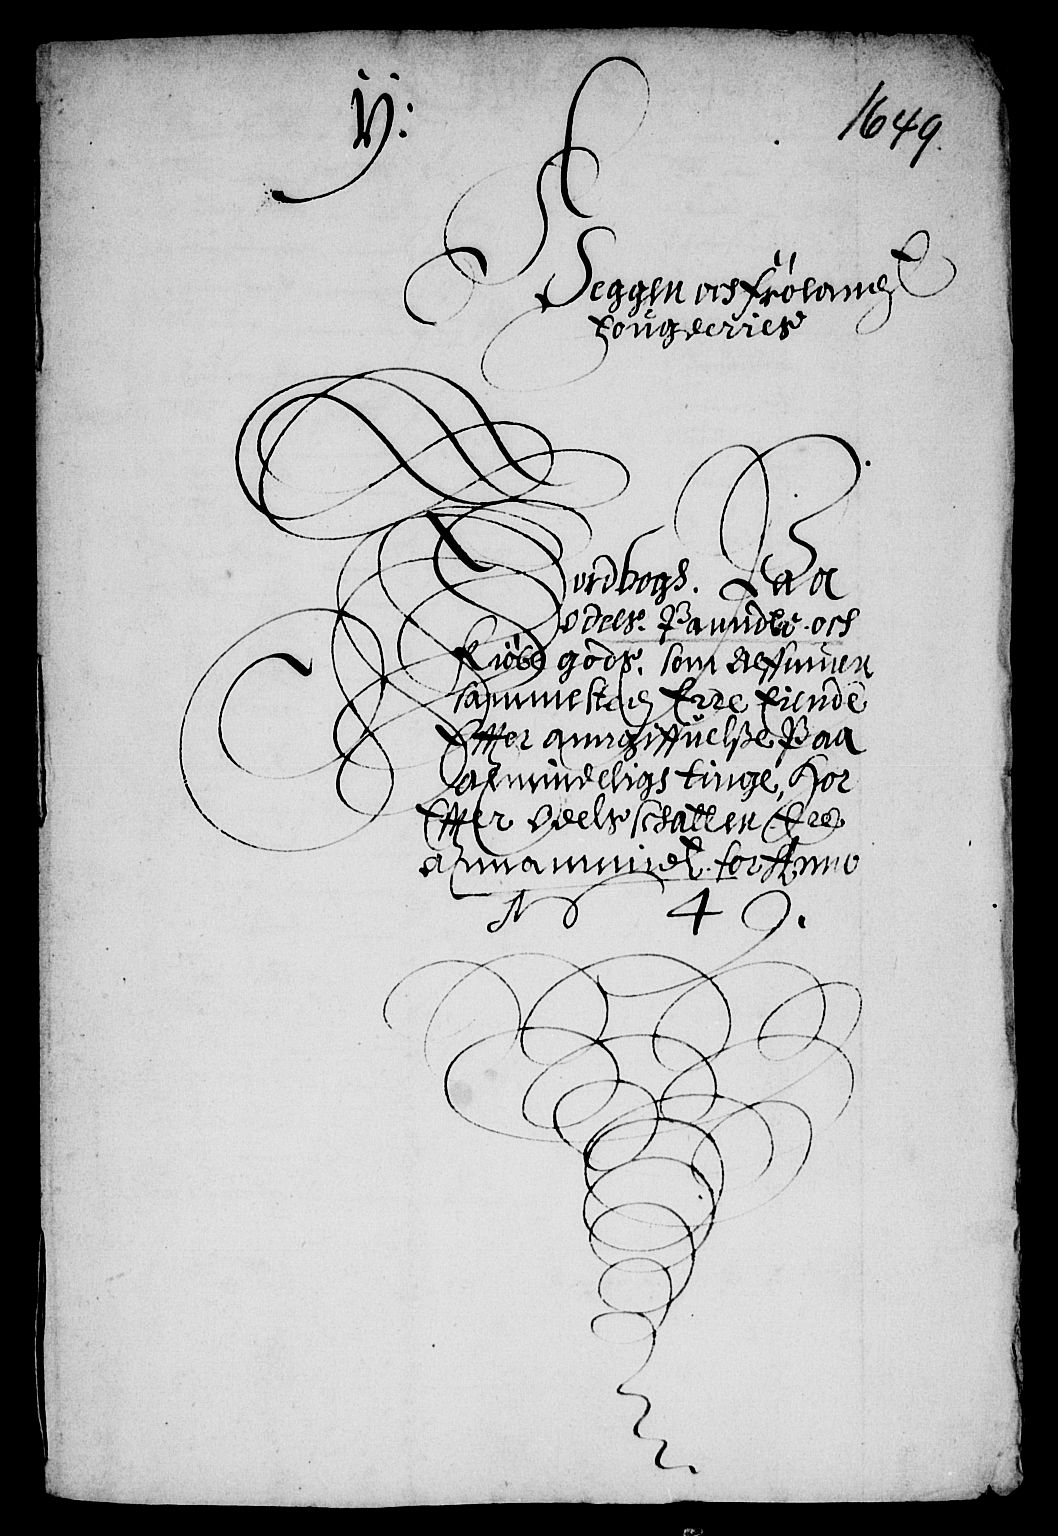 V:
1649.
Heggen och Frölandz
Fougderies
Jordbogh. Paa
Odels. Pannde och
Kiöbe godz. som Aff
sammestedz Ere Eiende
Effter anngiffuelße Paa
almindeligh tinge, Hor
Effter Odels schatten Ere
annammidt. for Anno
1649.